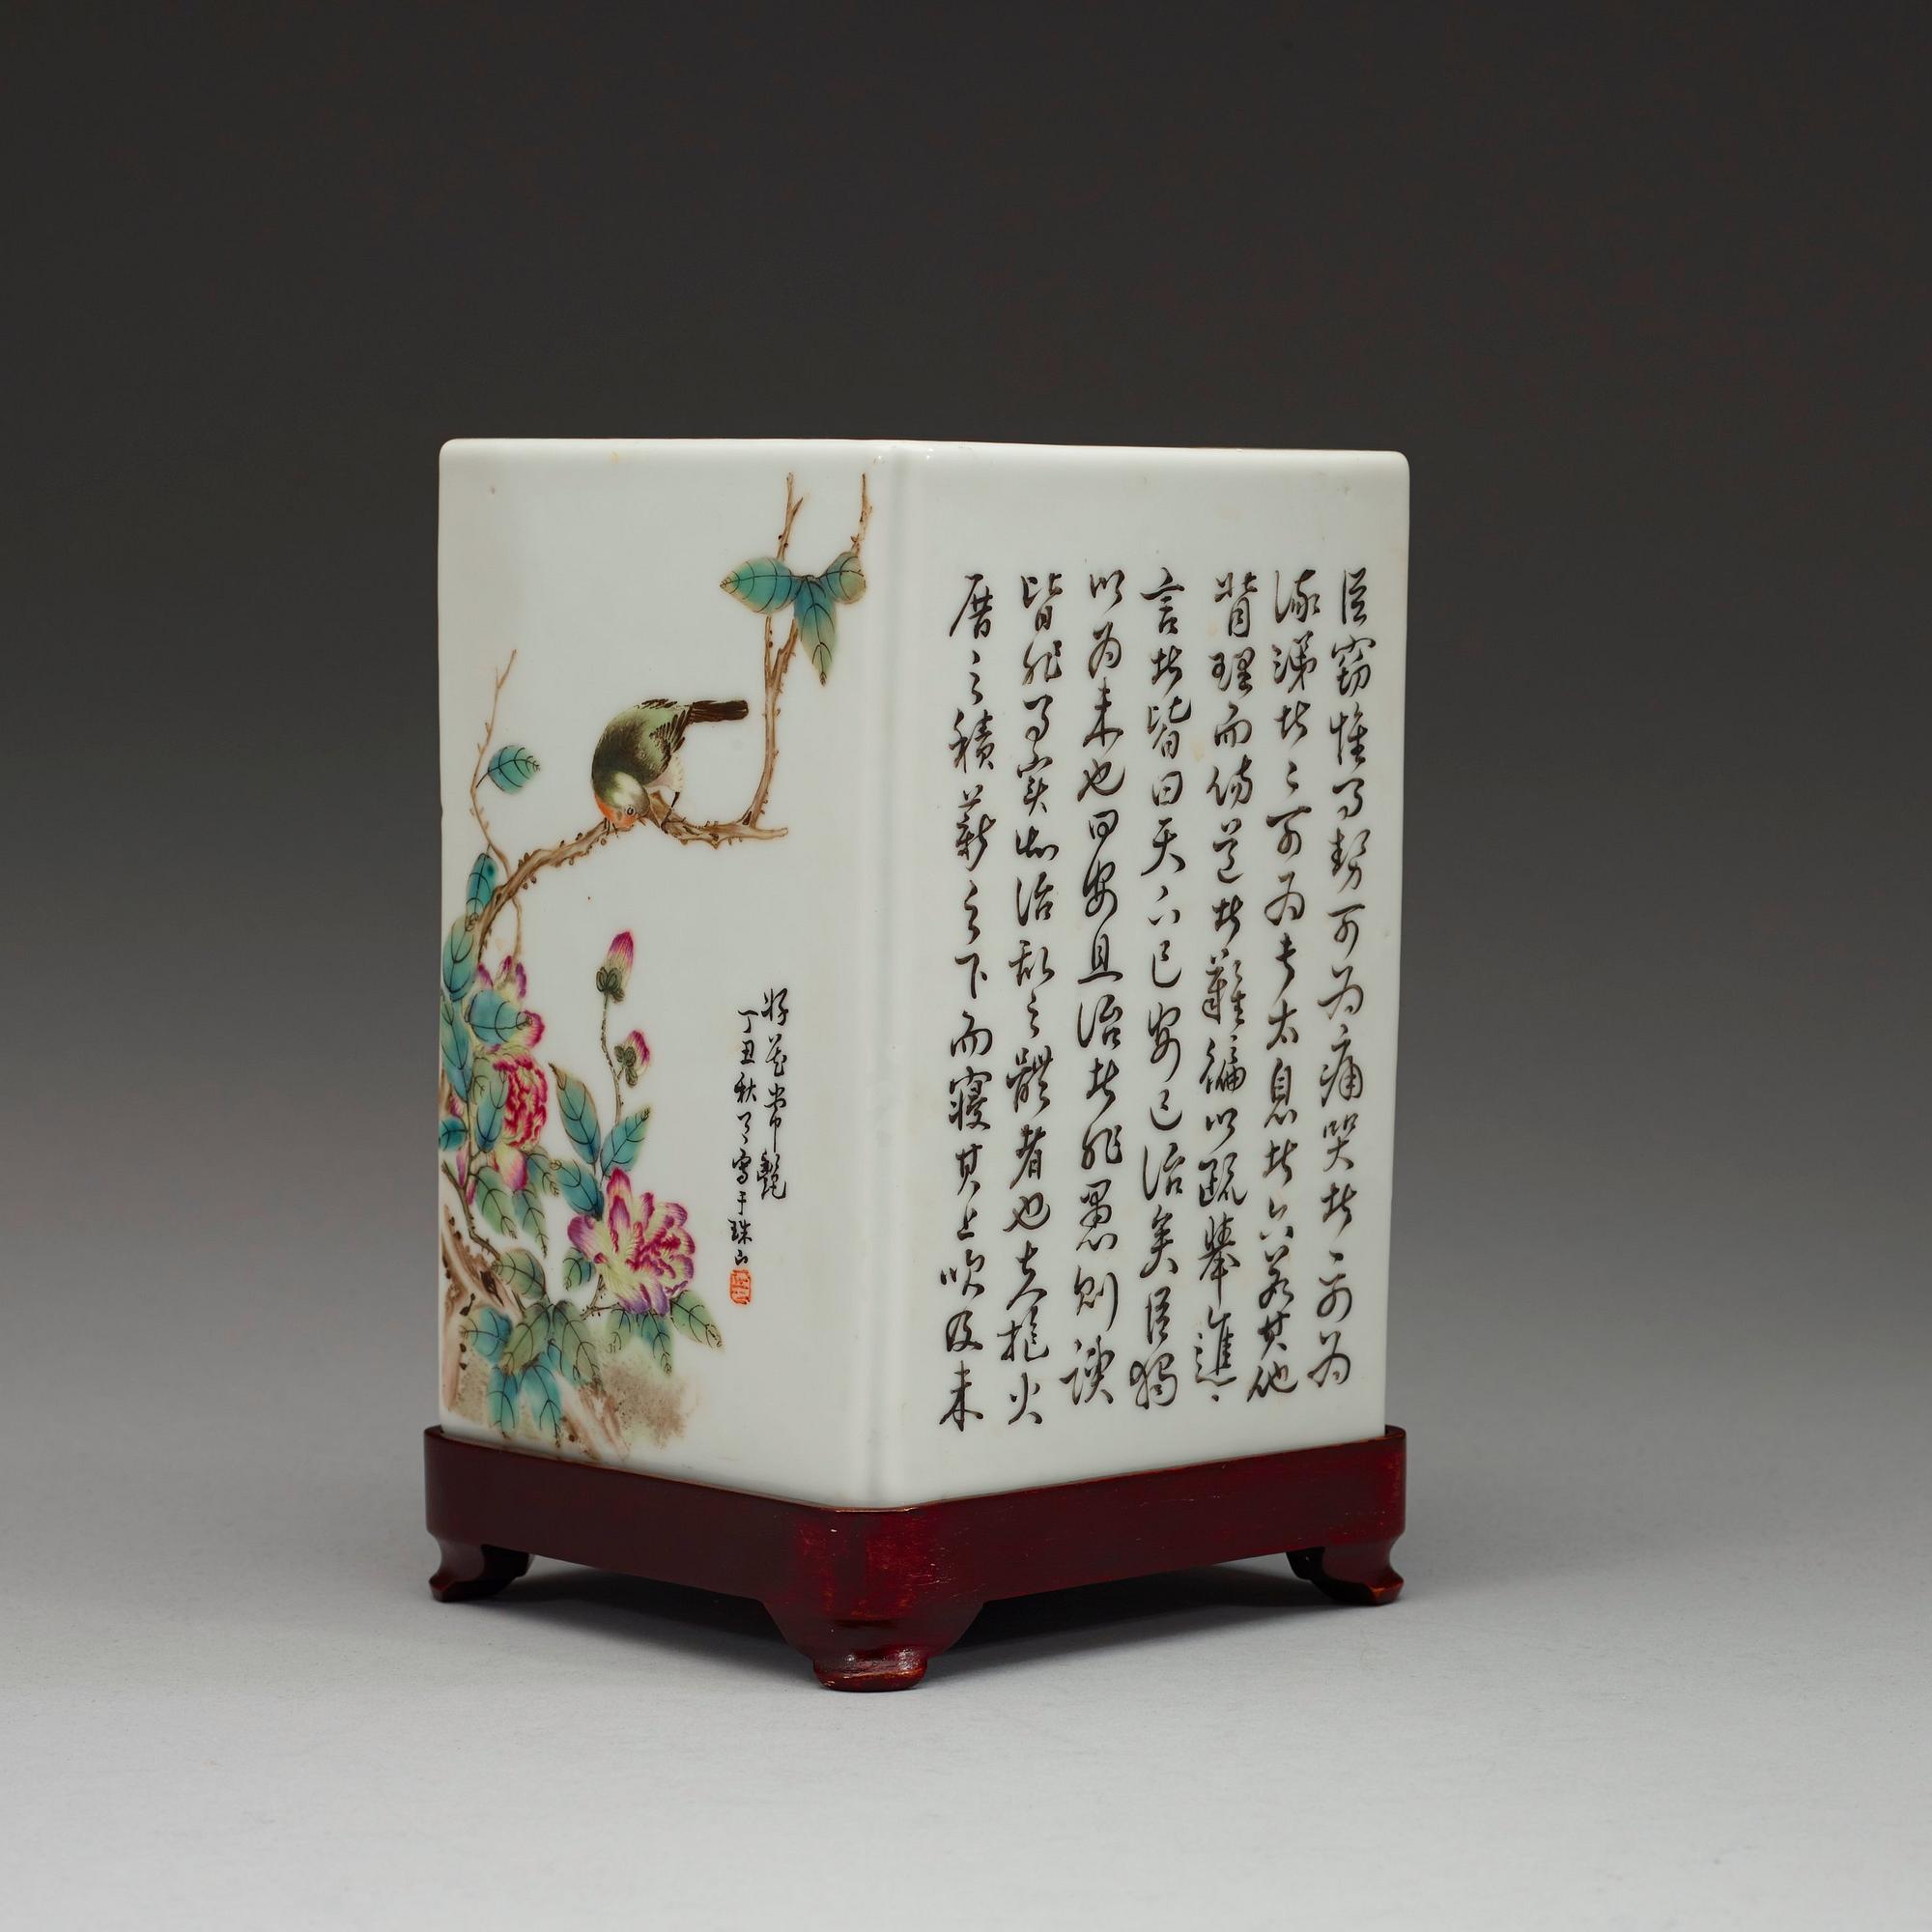 臣竊惟事勢可為痛哭者一可為
流涕者二可為長太息者六若其他
背理而傷道者難徧以疏舉進
言者皆曰天下已安已治矣臣獨
以為未也曰安且治者非愚則諛
皆非事實知治乱之體者也夫抱火
厝之積薪之下而寢其上吹及未
好花常艷
丁丑秋月寫于珠山